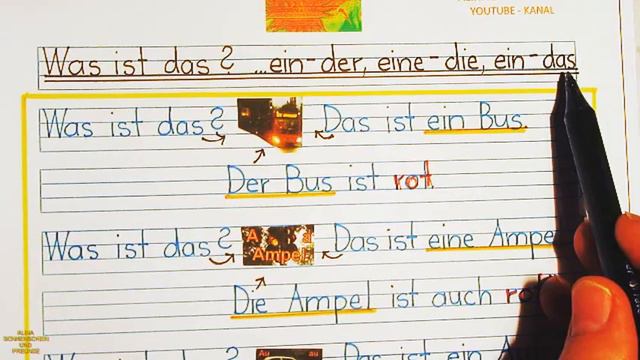 YOUTUBE - KANAL
Was ist das? ...ein-der, eine-die, ein-das
Was ist das? Das ist ein Bus.
Der Bus ist rot.
Was ist das? Ampel Das ist eine Ampe
Die Ampel ist auch ro
Was ist das? Au au Das ist ein A